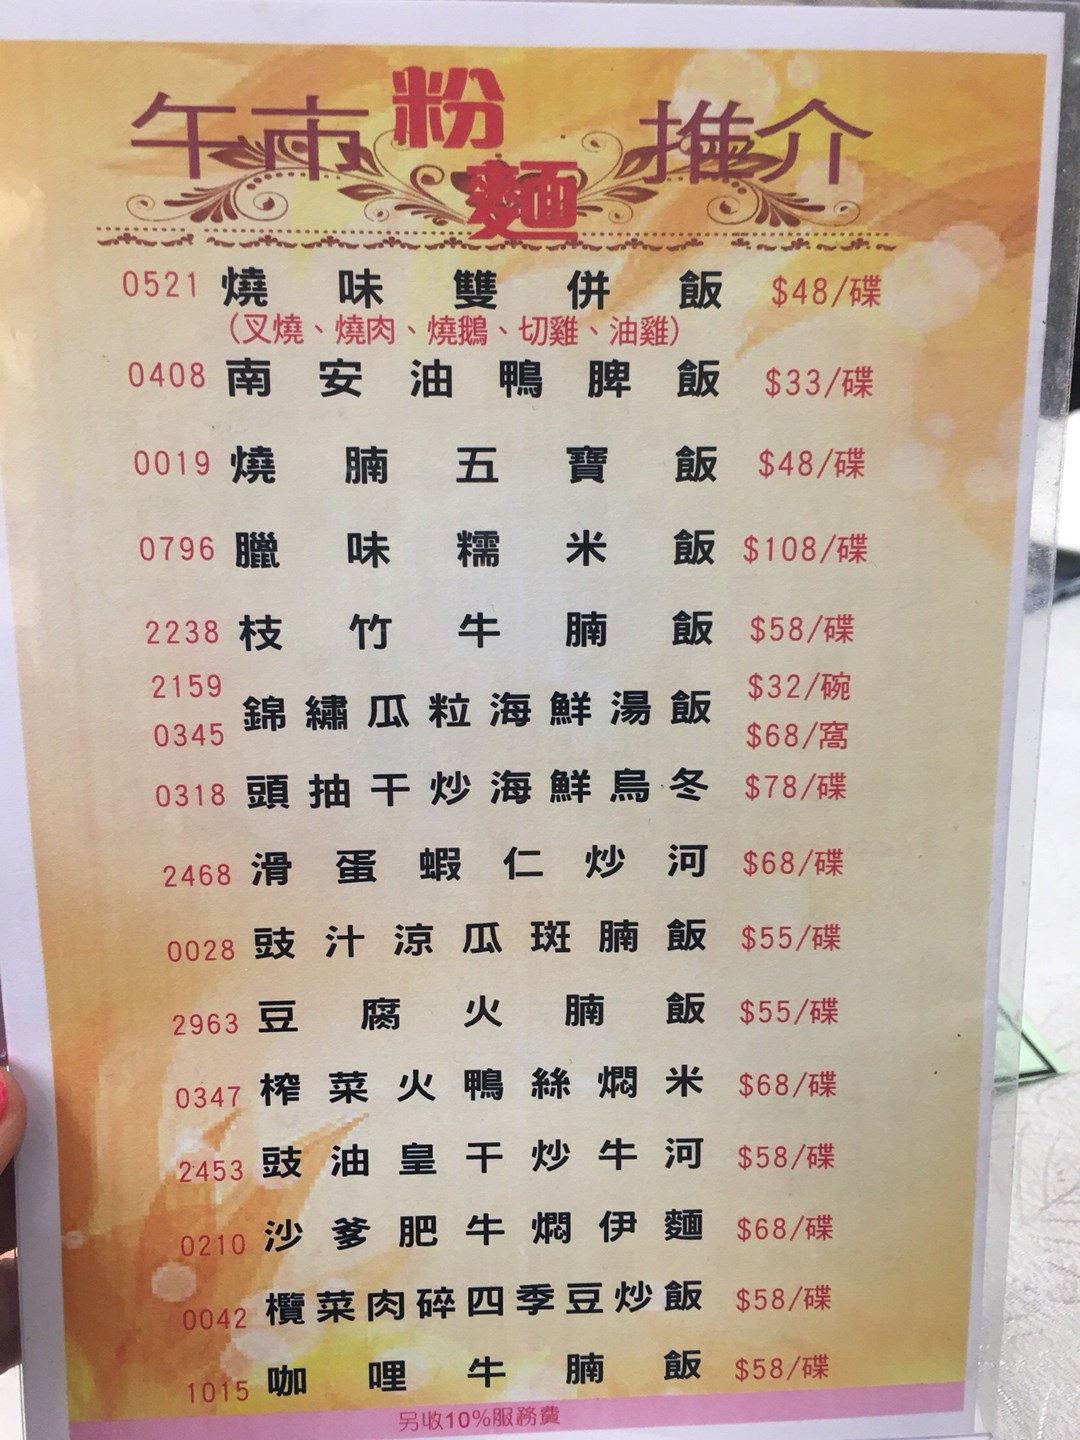 午市粉麵推介
0521 燒味雙併飯 $48/碟
（叉燒、燒肉、燒鵝、切雞、油雞）
0408 南安油鴨脾飯 $33/碟
0019 燒腩五寶飯 $48/碟
0796 臘味糯米飯 $108/碟
2238 枝竹牛腩飯 $58/碟
2159 $32/碗
錦繡瓜粒海鮮湯飯
0345 $68/窩
0318 頭抽干炒海鮮烏冬 $78/碟
2468 滑蛋蝦仁炒河 $68/碟
0028 豉汁涼瓜斑腩飯 $55/碟
2963 豆腐火腩飯 $55/碟
0347 榨菜火鴨絲燜米 $68/碟
2453 豉油皇干炒牛河 $58/碟
0210 沙爹肥牛燜伊麵 $68/碟
0042 欖菜肉碎四季豆炒飯 $58/碟
1015 咖哩牛腩飯 $58/碟
另收10%服務費